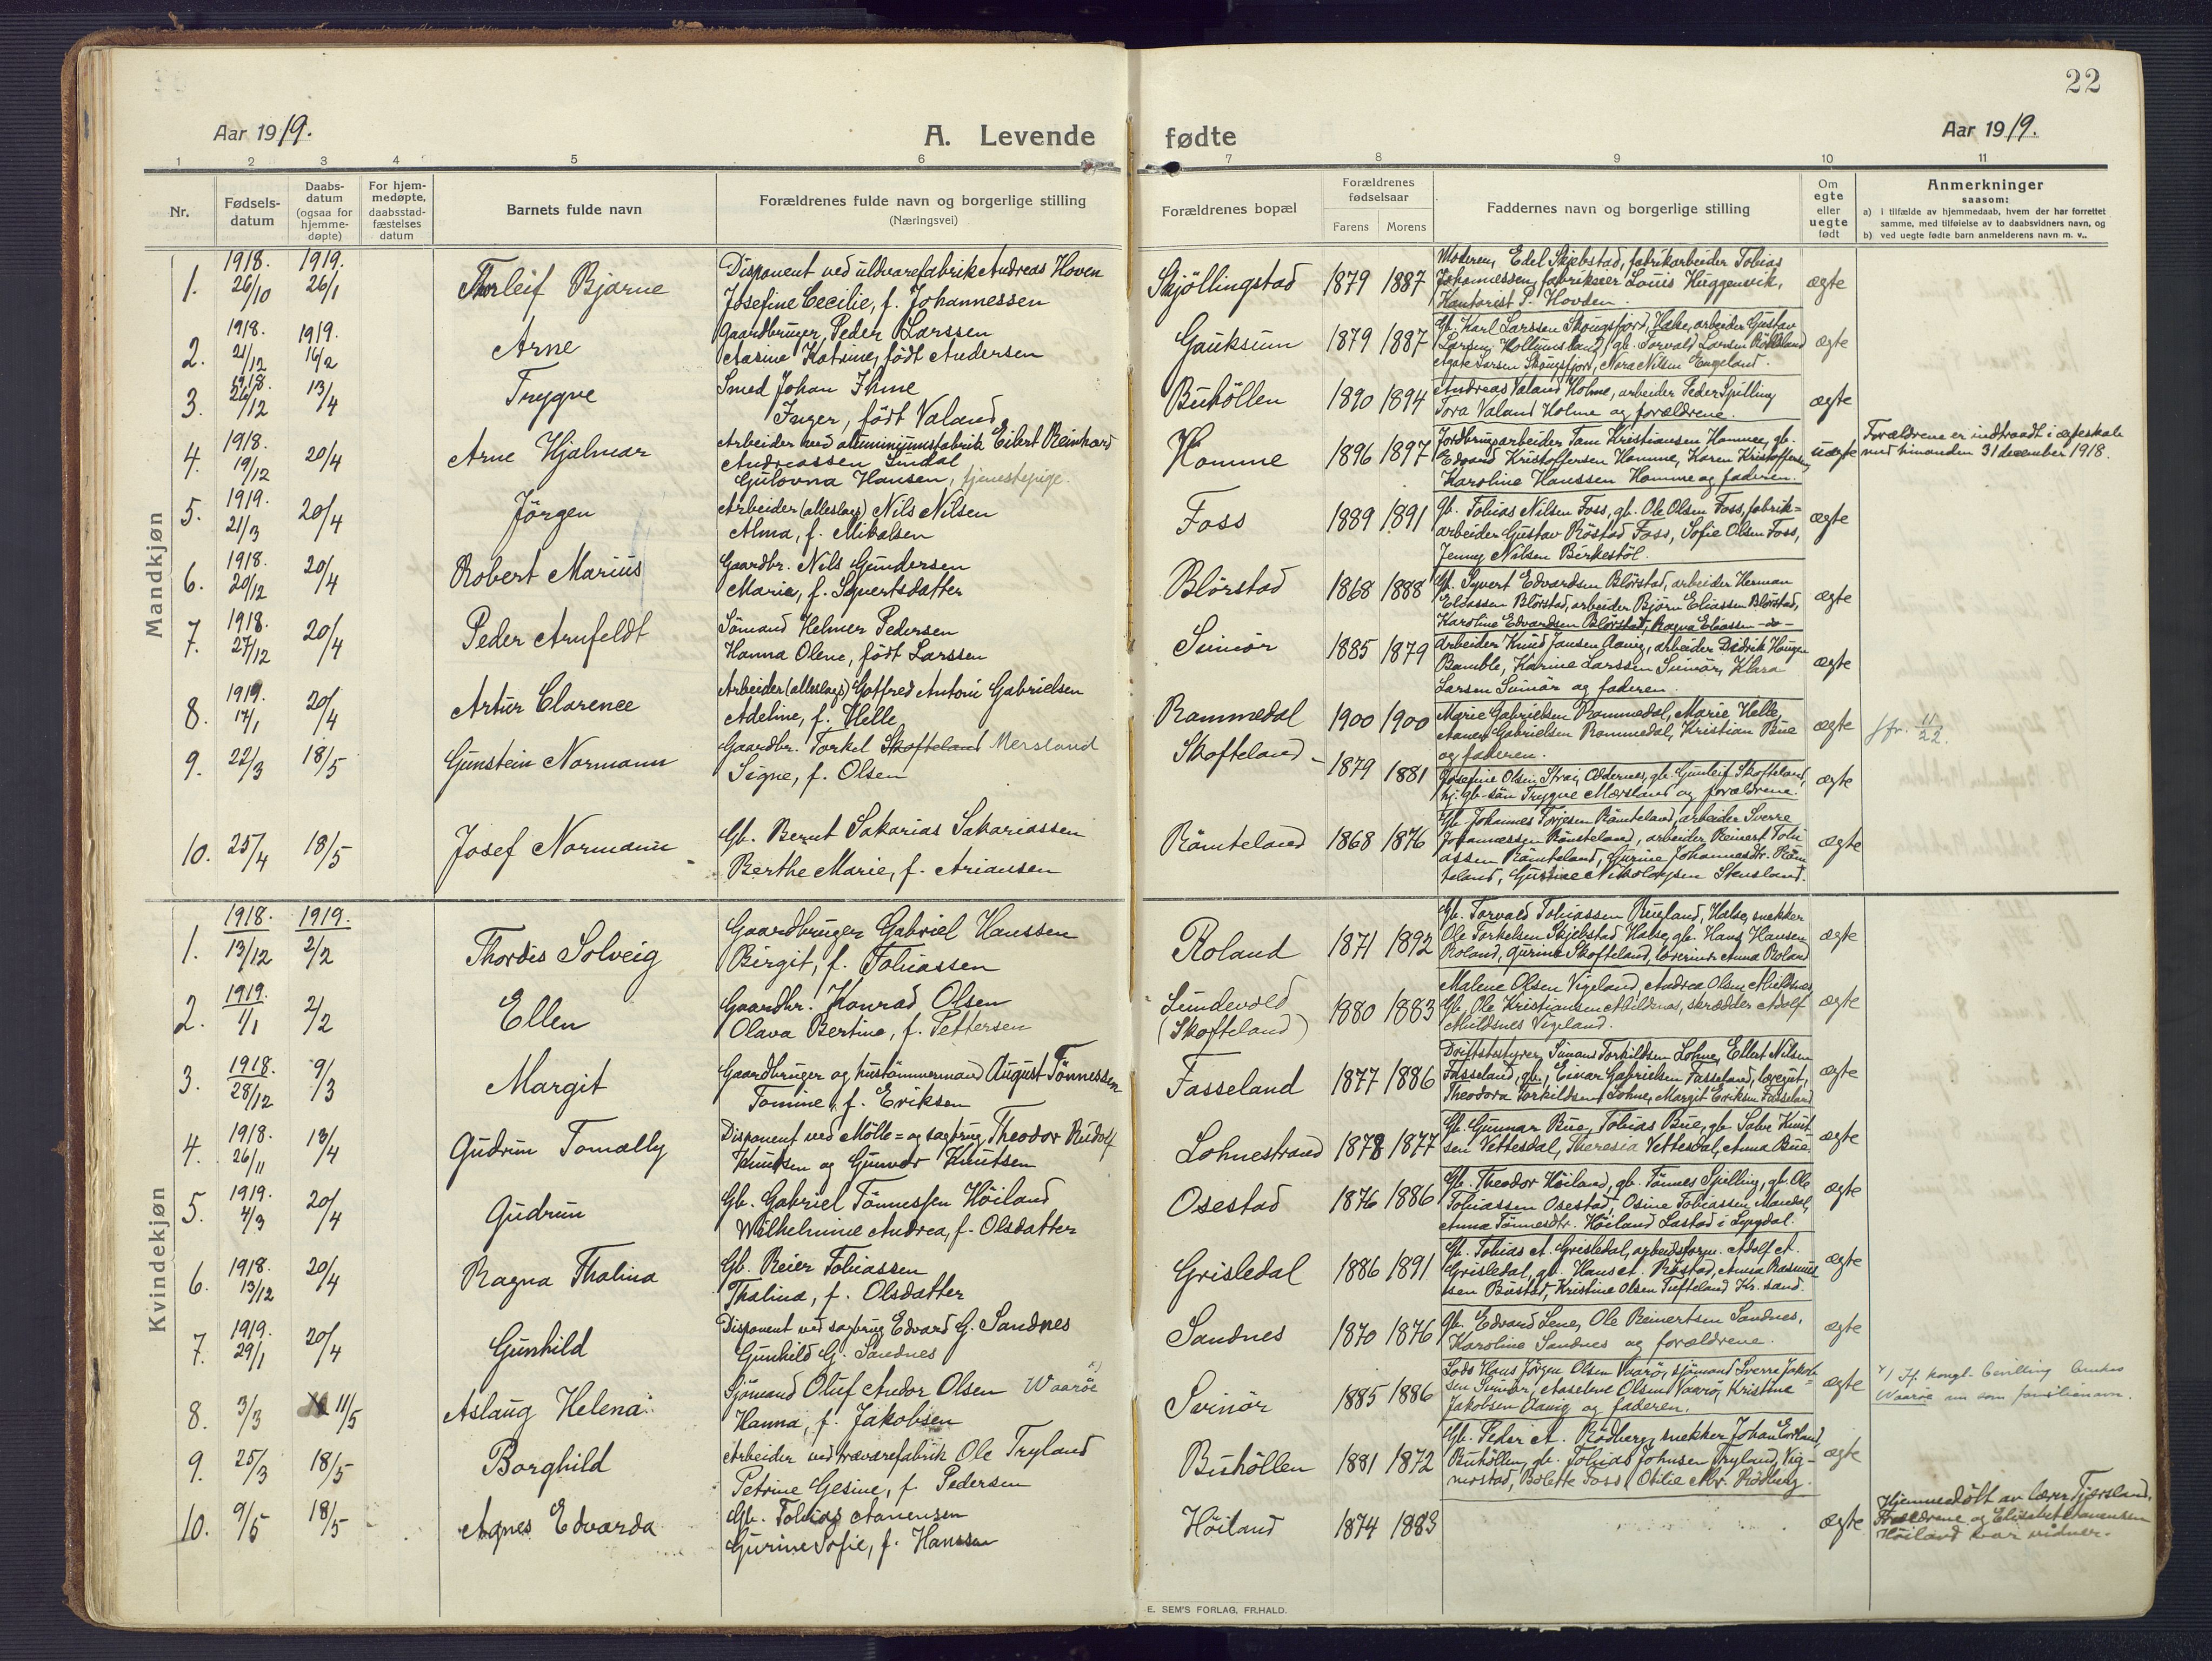 22
Aar 1919.
A. Levende fødte
Aar 1919.
1 2 3 4 5 6 7 8 9 10 11
Nr.
Fødsels-
datum
Daabs-
datum
(ogsaa for
hjemme-
døpte)
For hjem-
medøpte,
daabsstad-
fæstelses
datum
Barnets fulde navn
Forældrenes fulde navn og borgerlige stilling
(Næringsvei)
Forældrenes bopæl
Forældrenes
fødselsaar
Farens Morens
Faddernes navn og borgerlige stilling
Om
egte
eller
uegte
født
Anmerkninger
saasom:
a) i tilfælde av hjemmedaab, hvem der har forrettet
samme, med tilføielse av to daabsvidners navn, og
b) ved uegte fødte barn anmelderens navn m. v..
Mandkjøn
1. 1918. 26/10 1919. 26/1 Thorleif Bjarne
Disponent ved uldvarefabrik Andreas Hoven
Josefine Cecilie, f. Johannessen
Skjöllingstad 1879 1887
Moderen, Edel Skjebstad, fabrikarbeider Tobias
Johannessen, fabrikeier Louis Huggenvik,
Kontorist P. Hovden.
ægte
2. 1918. 21/12 1919. 16/2 Arne
Gaardbruger, Peder Larssen
Aasine Katrine, født Andersen
Gauksum 1879 1887
Gb. Karl Larssen Skougsfjord, Halse, arbeider Gustav
Larsen, Hollumsland, gb. Torvald Larsen
Agate Larsen Skougsfjord, Nora Nilsen Engeland.
ægte
3. 1918. 26/12 13/4 Trygve
Smed Johan Ihme
Inger, født Valand
Buhöllen 1890 1894
Andreas Valand Holme, arbeider Peder Spilling
Tora Valand Holme og forældrene.
ægte
4. 1918. 19/12 20/4 Arne Hjalmar
Arbeider ved aluminiumsfabrik Eilert Reinhard
Andreassen Lindal
Gulovna Hansen, tjenestepige.
Homme 1896 1897
Jordbrugsarbeider Tom Kristiansen Homme, gb.
Edvard Kristoffersen Homme, Karen Kristoffersen
Karoline Hanssen Homme og faderen.
uægte
Forældrene er indtraadt i ægteskab
med hinanden 31 december 1918.
5. 1919. 21/3 20/4 Jörgen
Arbeider (alleslags) Nils Nilsen
Alma, f. Mikalsen
Foss 1889 1891
Gb. Tobias Nilsen Foss, gb. Ole Olsen Foss, fabrik=
arbeider Gustav Röstad Foss, Sofie Olsen Foss,
Jenny Nilsen Birkestöl.
ægte
6. 1918. 20/12 20/4 Robert Marius
Gaardbr. Nils Gundersen
Marie, f. Syvertsdatter
Blörstad 1868 1888
Gb. Syvert Edvardsen Blörstad, arbeider Herman
Eliassen Blörstad, arbeider Björn Eliassen Blörstad,
Karoline Edvardsen Blörstad, Ragna Eliassen -do-
ægte
7. 1918. 27/12 20/4 Peder Arnfeldt
Sömand Helmer Pedersen
Hanna Olene, født Larssen
Svinör 1885 1879
Arbeider Knud Jansen Aavig, arbeider Didrik Hougen
Bamble, Karine Larssen Svinör, Klara
Larsen Svinör og faderen.
ægte
8. 1919. 17/1 20/4 Artur Clarence
Arbeider (alleslags) Gotfred Antoni Gabrielsen
Adeline, f. Helle
Rammedal 1900 1900
Marie Gabrielsen Rammedal, Marie Helle,
Aanen Gabrielsen Rammedal, Kristian Bue
og faderen.
ægte
jfr. 11/22.
9. 22/3 18/5 Gunstein Normann
Gaardbr. Torkel Skofteland Mersland
Signe, f. Olsen
Skofteland - 1879 1881
Josefine Olsen Strai, Oddernes, gb. Gunleif Skofteland,
hj. gb-sön Trygve Mersland og forældrene.
ægte
10. 25/4 18/5 Josef Normann
Gb. Bernt Sakarias Sakariassen
Berthe Marie, f. Ariansen
Römteland 1868 1876
Gb. Johannes Torjesen Römteland, arbeider Sverre
Johannessen Römteland, arbeider Reinert Tobi
assen Römteland, Gurine Johannesdtr. Röm
teland, Gurine Nikolaysen Stensland.
ægte
Kvindekjøn
1. 1918. 13/12 1919. 2/2 Thordis Solveig
Gaardbruger Gabriel Hanssen
Birgit, f. Tobiassen
Roland 1871 1892
Gb. Torvald Tobiassen Rugland, Halse, snekker
Ole Torkelsen Skjebstad Halse, gb. Hans Hansen
Roland, Gurine Skofteland, lærerinde Anna Roland
ægte
2. 1919. 1/1 2/2 Ellen
Gaardbr. Konrad Olsen
Olava Bertine, f. Pettersen
Sundevold
(Skofteland) 1880 1883
Malene Olsen Vigeland, Andrea Olsen Mildsnes,
Gb. Ole Kristiansen Mildsnes, skrædder Adolf
Mildsnes Vigeland.
ægte
3. 1918. 28/12 9/3 Margit
Gaardbruger og hustömmermand August Tönnessen
Tomine, f. Eriksen
Fasseland 1877 1886
Driftsbestyrer Simon Torkildsen Lohne, Ellert Nilsen
Fasseland, gb., Einar Gabrielsen Fasseland, lovgut,
Theodora Torkildsen Lohne, Margit Eriksen Fasseland
ægte
4. 1918. 26/11 13/4 Gudrun Tomally
Disponent ved Mölle= og sagbrug Theodor Rudolf
Knutsen og Gunvor Knutsen
Lohnestrand 1878 1877
Gb. Gunnar Bue, Tobias Bue, gb. Salve Knut
sen Vettesdal, Theresia Vettesdal, Anna Bue
ægte
5. 1919. 4/3 20/4 Gudrun
Gb. Gabriel Tönnessen Höiland
Wilhelmine Andrea, f. Olsdatter
Osestad 1876 1886
Gb. Theodor Höiland, gb. Tönnes Spilling, gb. Ole
Tobiassen Osestad, Osine Tobiassen Mandal,
Anna Tönnesdtr. Höiland Lastad i Lyngdal.
ægte
6. 1918. 13/12 20/4 Ragna Thalina
Gb. Reier Tobiassen
Thalina, f. Olsdatter
Grisledal 1886 1891
Gb. Tobias A. Grisledal, arbeidsform. Adolf A.
Grisledal, gb. Hans A. Röstad, Anna Rasmus
sen Bustad, Kristine Olsen Tufteland Kr.sand.
ægte
7. 1919. 29/1 20/4 Gunhild
Disponent ved sagbrug Edvard G. Sandnes
Gunhild G. Sandnes
Sandnes 1870 1876
Gb. Edvard Lene, Ole Reinertsen Sandnes,
Karoline Sandnes og forældrene.
ægte
8. 3/3 11/5 Aslaug Helena
Sjömand Oluf Andor Olsen Waaröe x)
Hanna, f. Jakobsen
Svinör 1885 1886
Lods Hans Jörgen Olsen Vaarö, sjömand Sverre Jakob=
sen Svinör, Aaselene Olsen Vaarö, Kristine
Jakobsen Aavig og faderen.
ægte
x) If. kongl. bevilling
Waaröe som familienavn.
9. 25/3 18/5 Borghild
Arbeider ved trævarefabrik Ole Tryland
Petrine Gesine, f. Pedersen
Buhöllen 1881 1872
Gb. Peder A. Rödberg, snekker Johan
Buhöllen, gb. Tobias Johnsen Tryland, Vig-
mostad, Bolette Foss, Otilie Rödberg.
ægte
10. 9/5 18/5 Agnes Edvarda
Gb. Tobias Aanensen
Gurine Sofie, f. Hanssen
Höiland 1874 1883
ægte
Hjemmedöbt av lærer Tjersland.
Forældrene og Elisabet Aanensen
Höiland var vidner.
E. SEM'S FORLAG, FR.HALD.